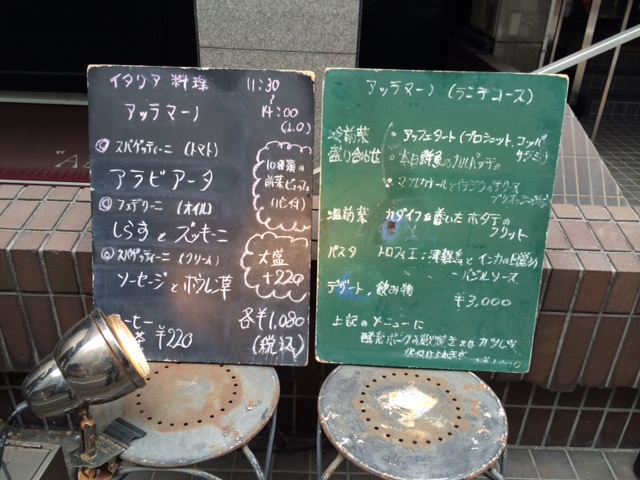 イタリア料理 11:30
〜
アッラマーノ 14:00
(L.O)
◎ スパゲッティーニ (トマト)
アラビアータ
◎ フェデリーニ (オイル)
しらすとズッキーニ
◎ スパゲッティーニ (クリーム)
ソーセージとホウレン草
ーヒー
茶 ¥220
各¥1,080
(税込)
10種類の
前菜ビュッフェ
(パン付)
大盛
+220
アッラマーノ (ランチコース)
冷前菜
盛り合わせ
・アフェタート(プロシュット、コッパ
サラミ)
・本日鮮魚のカルパッチョ
温前菜 カダイフを巻いたホタテの
フリット
パスタ トロフィエ 海鮮とインカの目覚め
バジルソース
デザート、飲み物
¥3,000
上記のメニューに